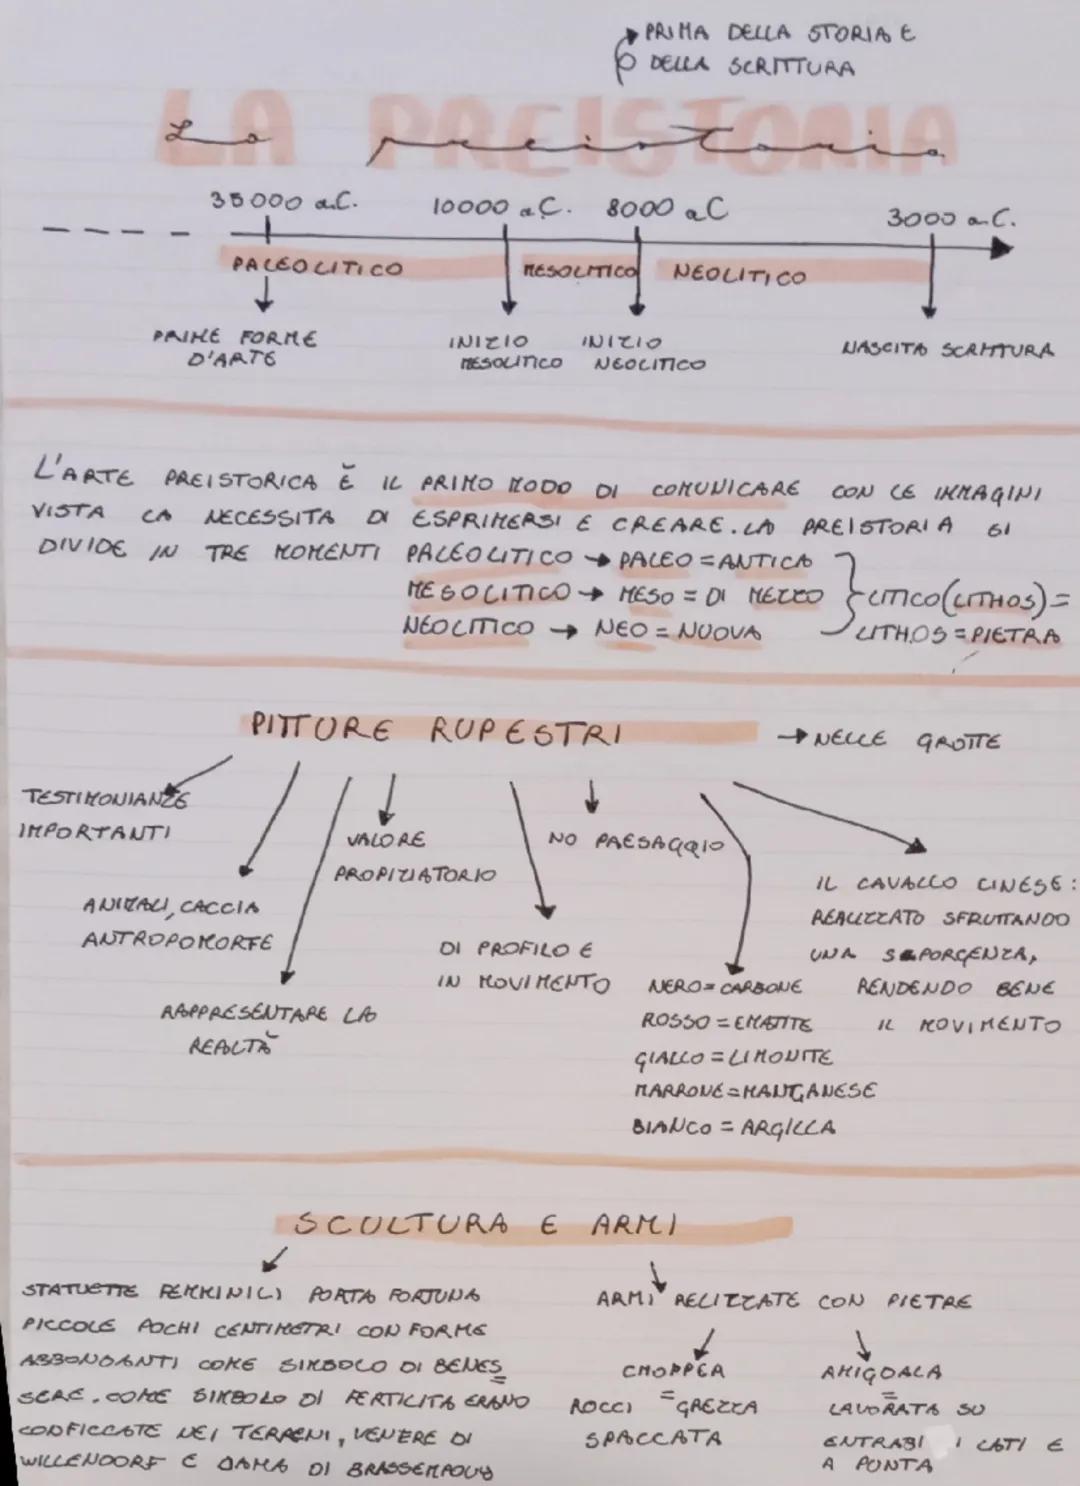 PRIMA DELLA STORIA E
DELLA SCRITTURA
LA PREISTORIA
La preistoria
35000 a.C. 10000 a.C. 8000 a.C 3000 a.C.
PALEOLITICO MESOLITICO NEOLITICO
PRIME FORME D'ARTE
INIZIO MESOLITICO
INIZIO NEOLITICO
NASCITA SCRITTURA
L'ARTE PREISTORICA È IL PRIMO MODO DI COMUNICARE CON LE IMMAGINI
VISTA LA NECESSITA DI ESPRIMERSI E CREARE. LA PREISTORIA SI
DIVIDE IN TRE MOMENTI PALEOLITICO → PALEO = ANTICA
MESOLITICO → MESO = DI MEZZO } LITICO (LITHOS) =
NEOLITICO → NEO = NUOVA LITHOS = PIETRA
PITTURE RUPESTRI → NELLE GROTTE
TESTIMONIANZE
IMPORTANTI
ANIMALI, CACCIA
ANTROPOMORFE
RAPPRESENTARE LA
REALTÀ
VALORE
PROPIZIATORIO
DI PROFILO E
IN MOVIMENTO
NO PAESAGGIO
NERO = CARBONE
ROSSO = EMATITE
GIALLO = LIMONITE
MARRONE = MANGANESE
BIANCO = ARGILLA
IL CAVALLO CINESE:
REALIZZATO SFRUTTANDO
UNA SPORGENZA,
RENDENDO BENE
IL MOVIMENTO
SCULTURA E ARMI
STATUETTE FEMMINILI PORTA FORTUNA
PICCOLE POCHI CENTIMETRI CON FORME
ABBONDANTI COME SIMBOLO DI BENES=
SERE. COME SIMBOLO DI FERTILITA ERANO
CONFICCATE NEI TERRENI, VENERE DI
WILLENDORF E DAMA DI BRASSEMPOUY
ARMI RELIZZATE CON PIETRE
CHOPPER
=
ROCCI GREZZA
SPACCATA
AMIGDALA
=
LAVORATA SU
ENTRABI I LATI E
A PUNTA